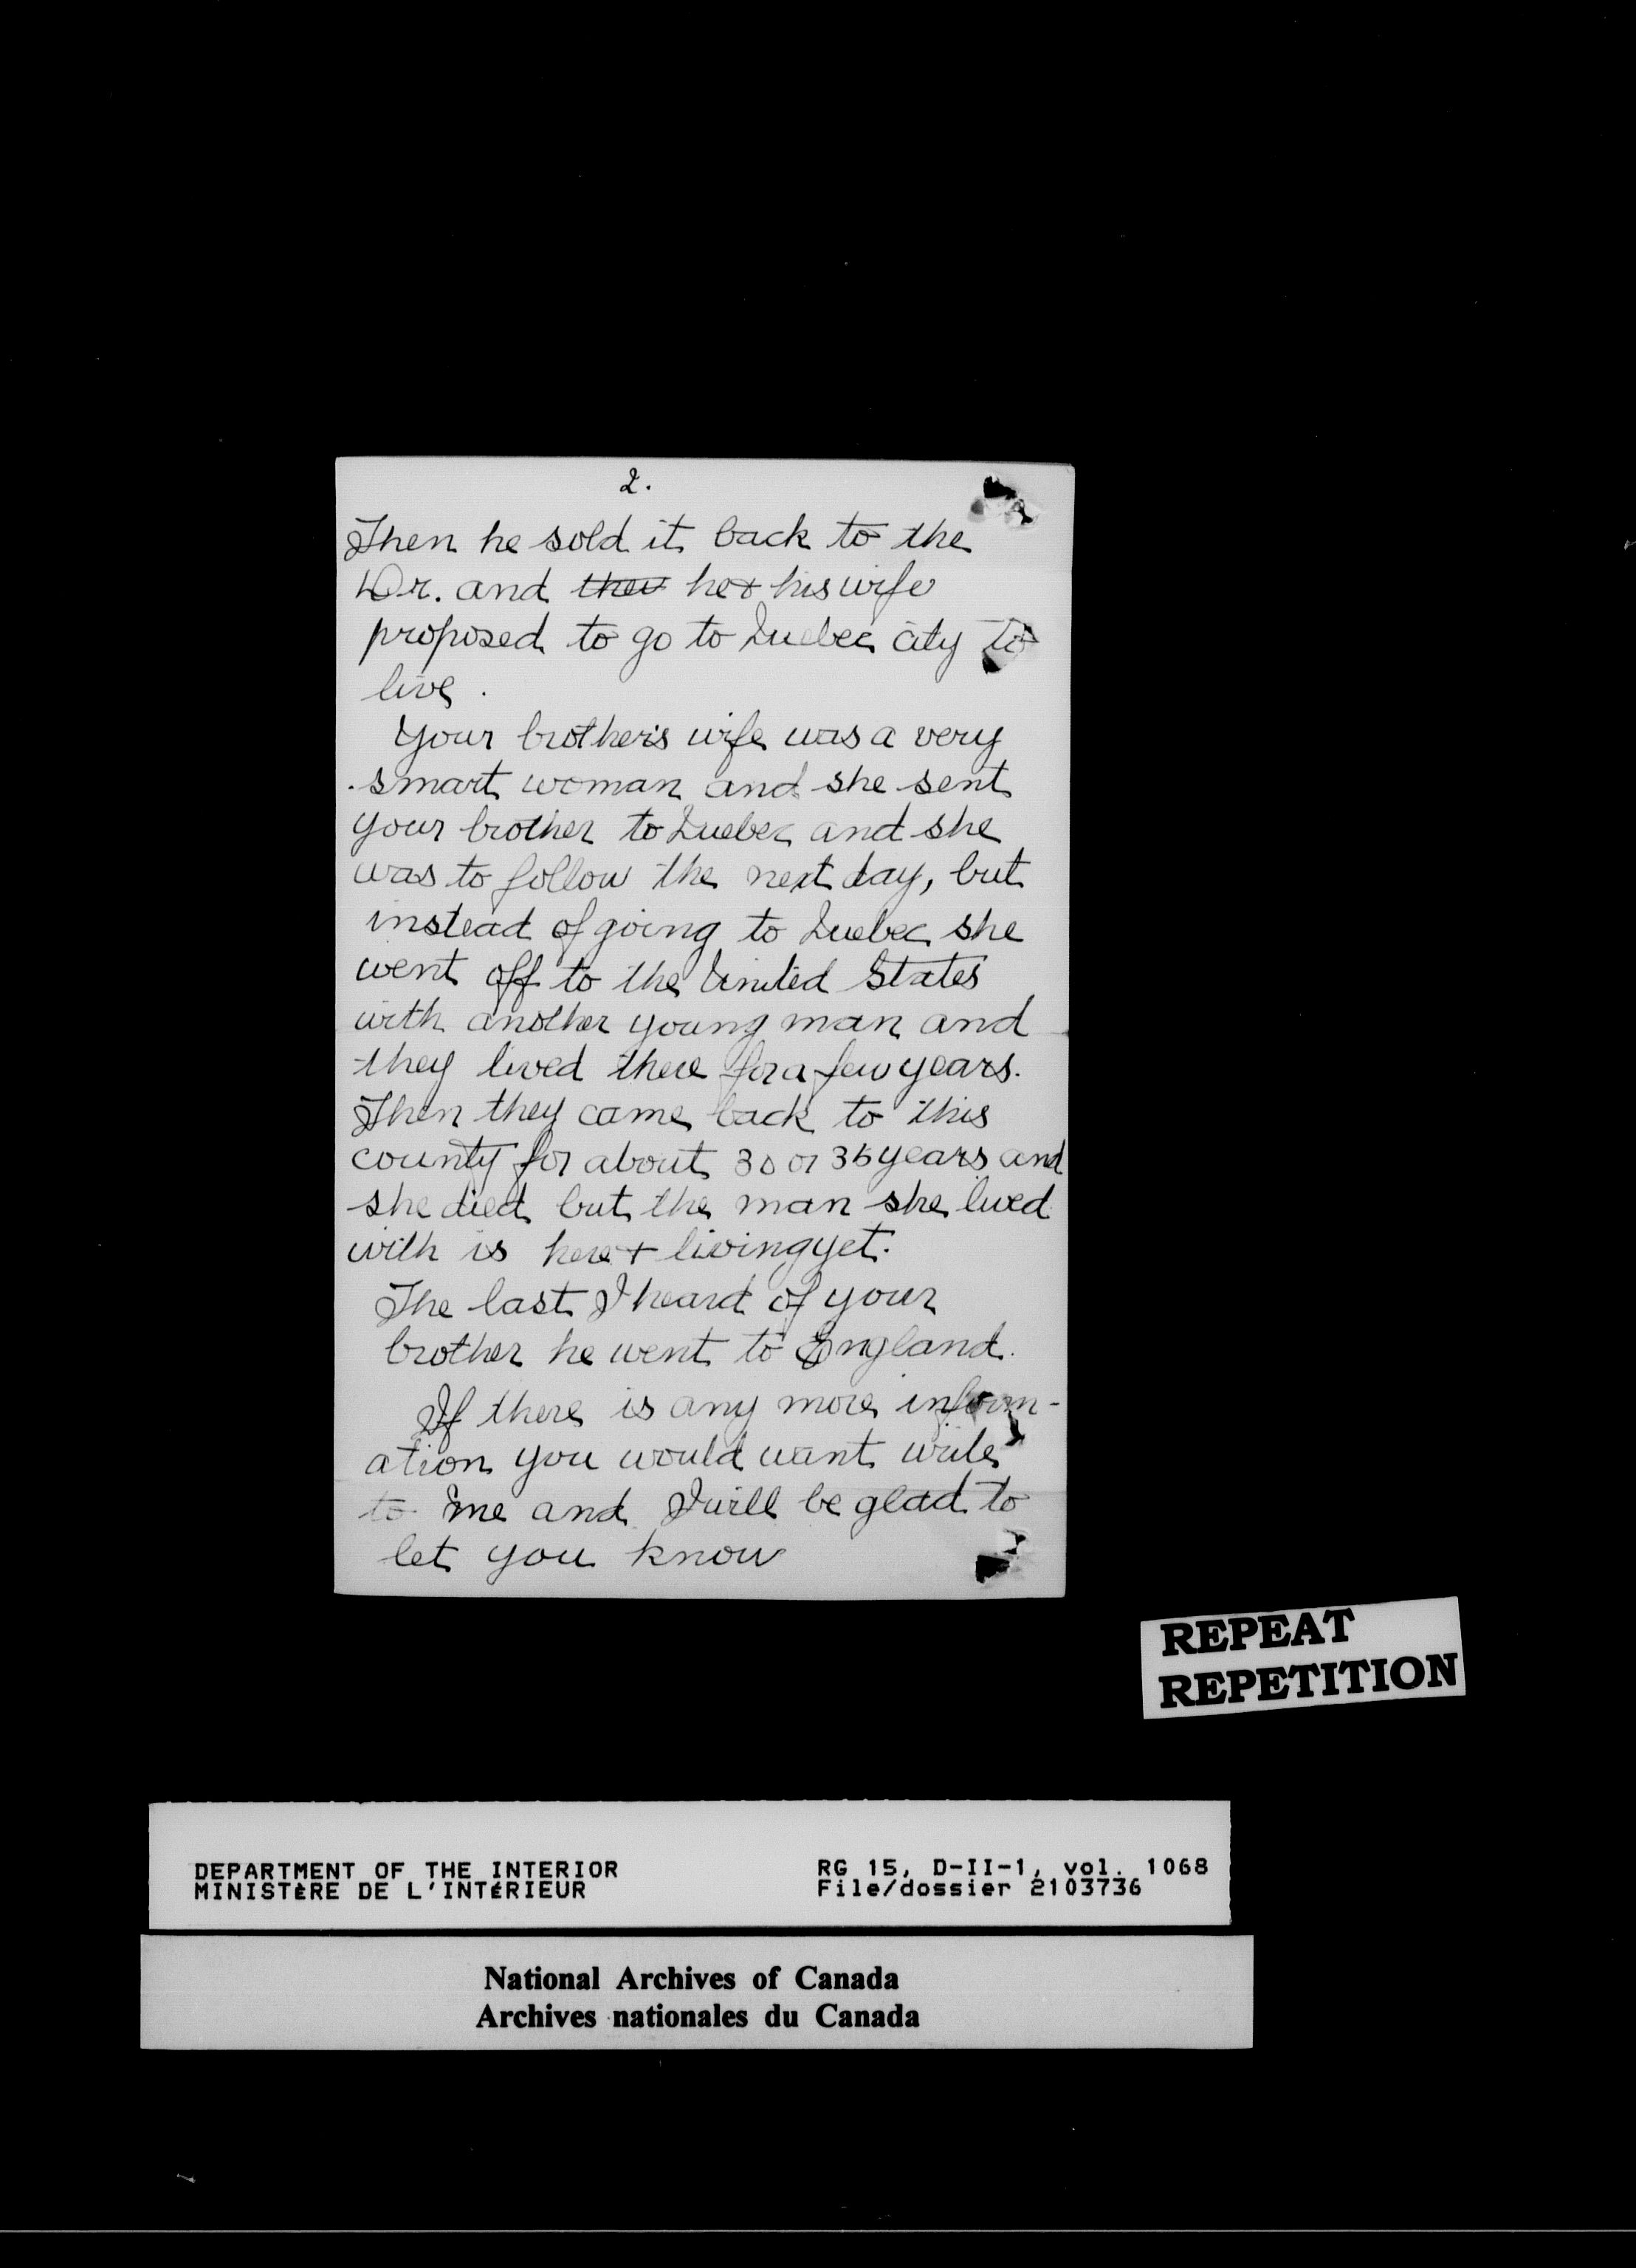 2.
Then he sold it back to the
Dr. and then he & his wife
proposed to go to Quebec city to
live.
Your brother's wife was a very
smart woman and she sent
your brother to Quebec and she
was to follow the next day, but
instead of going to Quebec she
went off to the United States
with another young man and
they lived there for a few years.
Then they came back to this
county for about 30 or 35 years and
she died but the man she lived
with is here & living yet.
The last I heard of your
brother he went to England.
If there is any more inform-
ation you would want write
to me and I will be glad to
let you know
REPEAT
REPETITION
DEPARTMENT OF THE INTERIOR RG 15, D-II-1, vol. 1068
MINISTÈRE DE L'INTÉRIEUR File/dossier 2103736
National Archives of Canada
Archives nationales du Canada